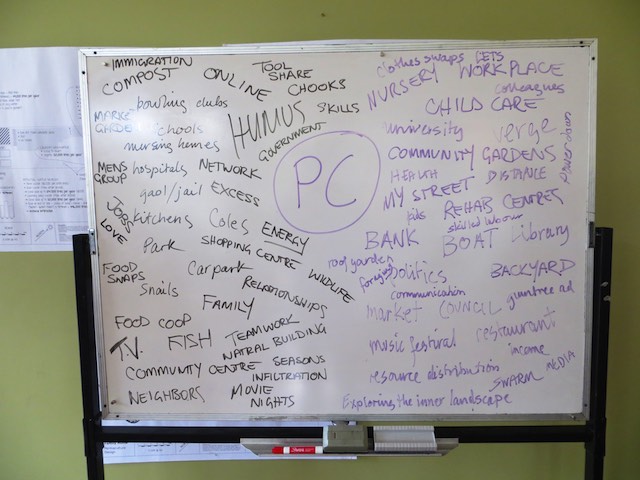 IMMIGRATION
COMPOST
ONLINE
TOOL
SHARE
CHOOKS
bowling clubs
HUMUS
SKILLS
GOVERNMENT
schools
nursing homes
MENS
GROUP
hospitals
NETWORK
gaol/jail
EXCESS
JOBS
LOVE
kitchens
Coles
ENERGY
Park
SHOPPING CENTRE
FOOD
SWAPS
Carpark
WILDLIFE
Snails
RELATIONSHIPS
FAMILY
FOOD COOP
T.V.
FISH
TEAMWORK
NATRAL BUILDING
COMMUNITY CENTRE
SEASONS
INFILTRATION
NEIGHBORS
MOVIE
NIGHTS
PC
clothes swaps
LETS
NURSERY
WORKPLACE
colleagues
CHILD CARE
university
verge
COMMUNITY GARDENS
HEALTH
DISTANCE
MY STREET
kids
REHAB CENTRES
skilled labour
BANK
BOAT
Library
roof garden
politics
BACKYARD
communication
market
COUNCIL
gumtree ad
music festival
restaurant
income
resource distribution
SWARM
MEDIA
Exploring the inner landscape